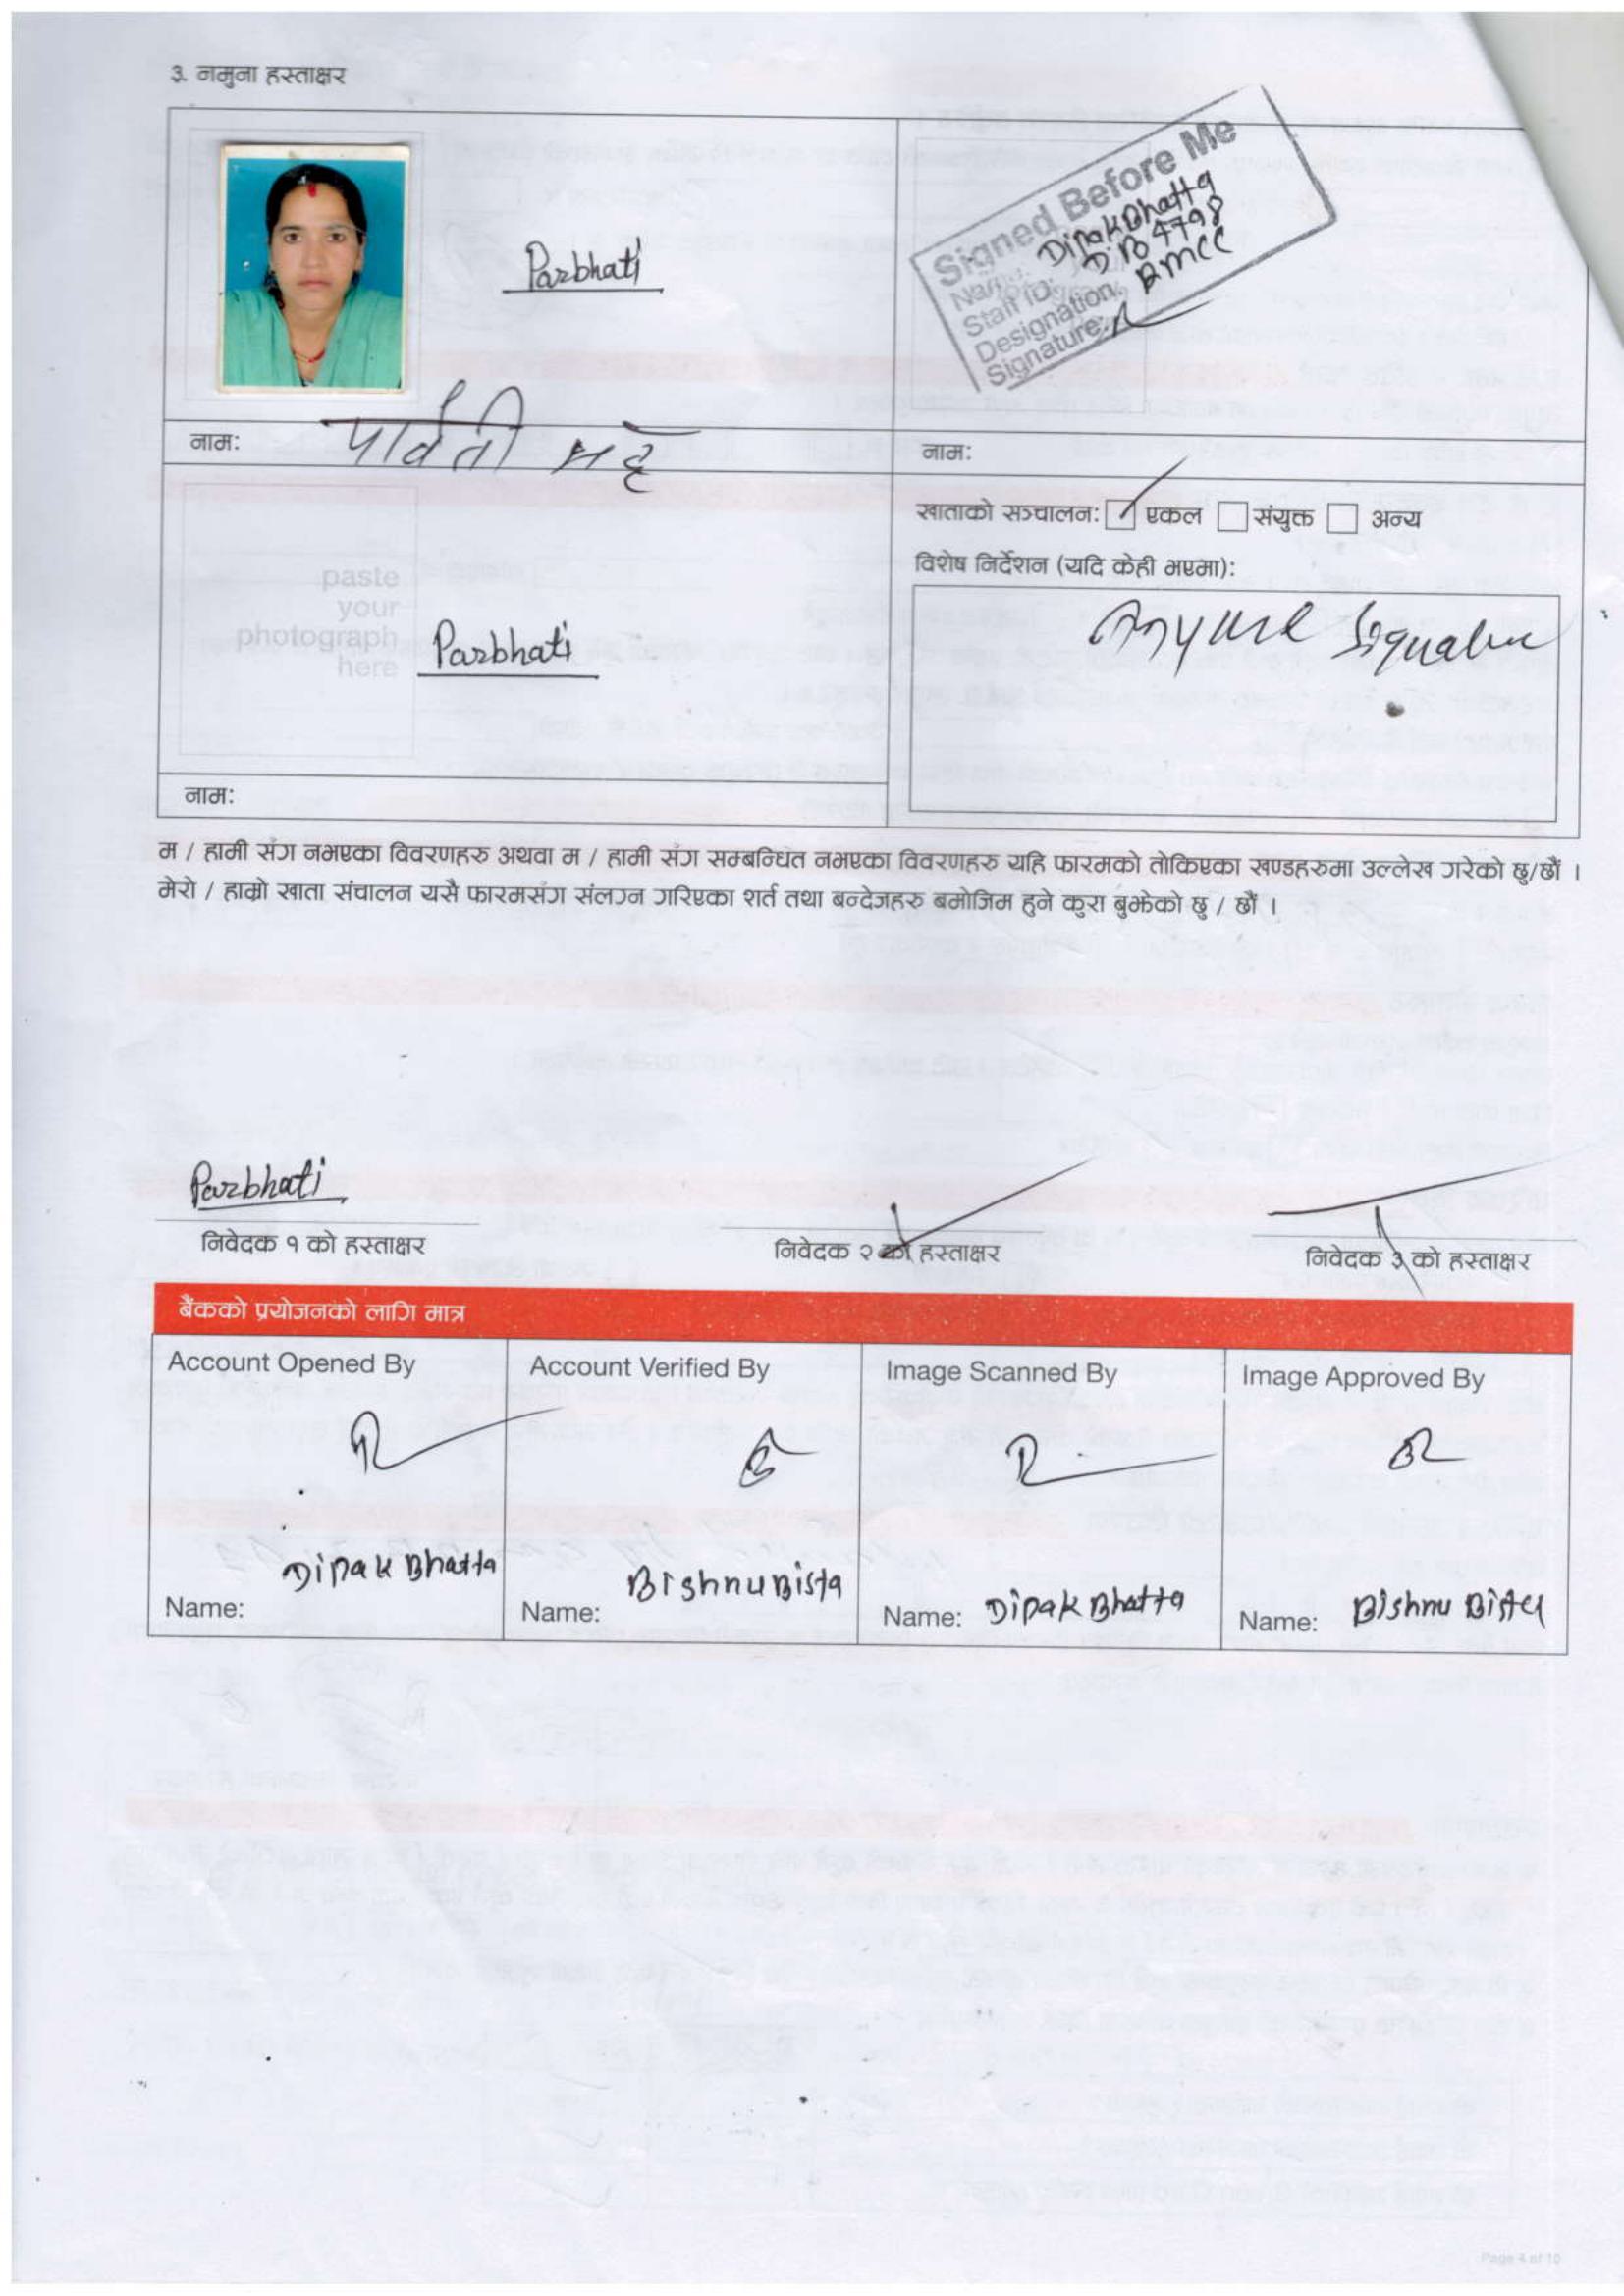 ३. नमुना हस्ताक्षर
Parbhati
Signed Before Me
Name: Dipak Bhatta
Staff ID: DB 4798
Designation: BMCC
Signature:
नाम: पार्वती भट्ट
नाम:
खाताको सञ्चालन: एकल संयुक्त अन्य
विशेष निर्देशन (यदि केही भएमा):
Anyone Signature
paste
your
photograph
here
Parbhati
नाम:
म / हामी संग नभएका विवरणहरु अथवा म / हामी संग सम्बन्धित नभएका विवरणहरु यहि फारमको तोकिएका खण्डहरुमा उल्लेख गरेको छु/छौं ।
मेरो / हाम्रो खाता संचालन यसै फारमसंग संलग्न गरिएका शर्त तथा बन्देजहरु बमोजिम हुने कुरा बुझेको छु / छौं ।
Parbhati
निवेदक १ को हस्ताक्षर निवेदक २ को हस्ताक्षर निवेदक ३ को हस्ताक्षर
बैंकको प्रयोजनको लागि मात्र
Account Opened By Account Verified By Image Scanned By Image Approved By
Name: Dipak Bhatta Name: Bishnu Bista Name: Dipak Bhatta Name: Bishnu Bista
Page 4 of 10